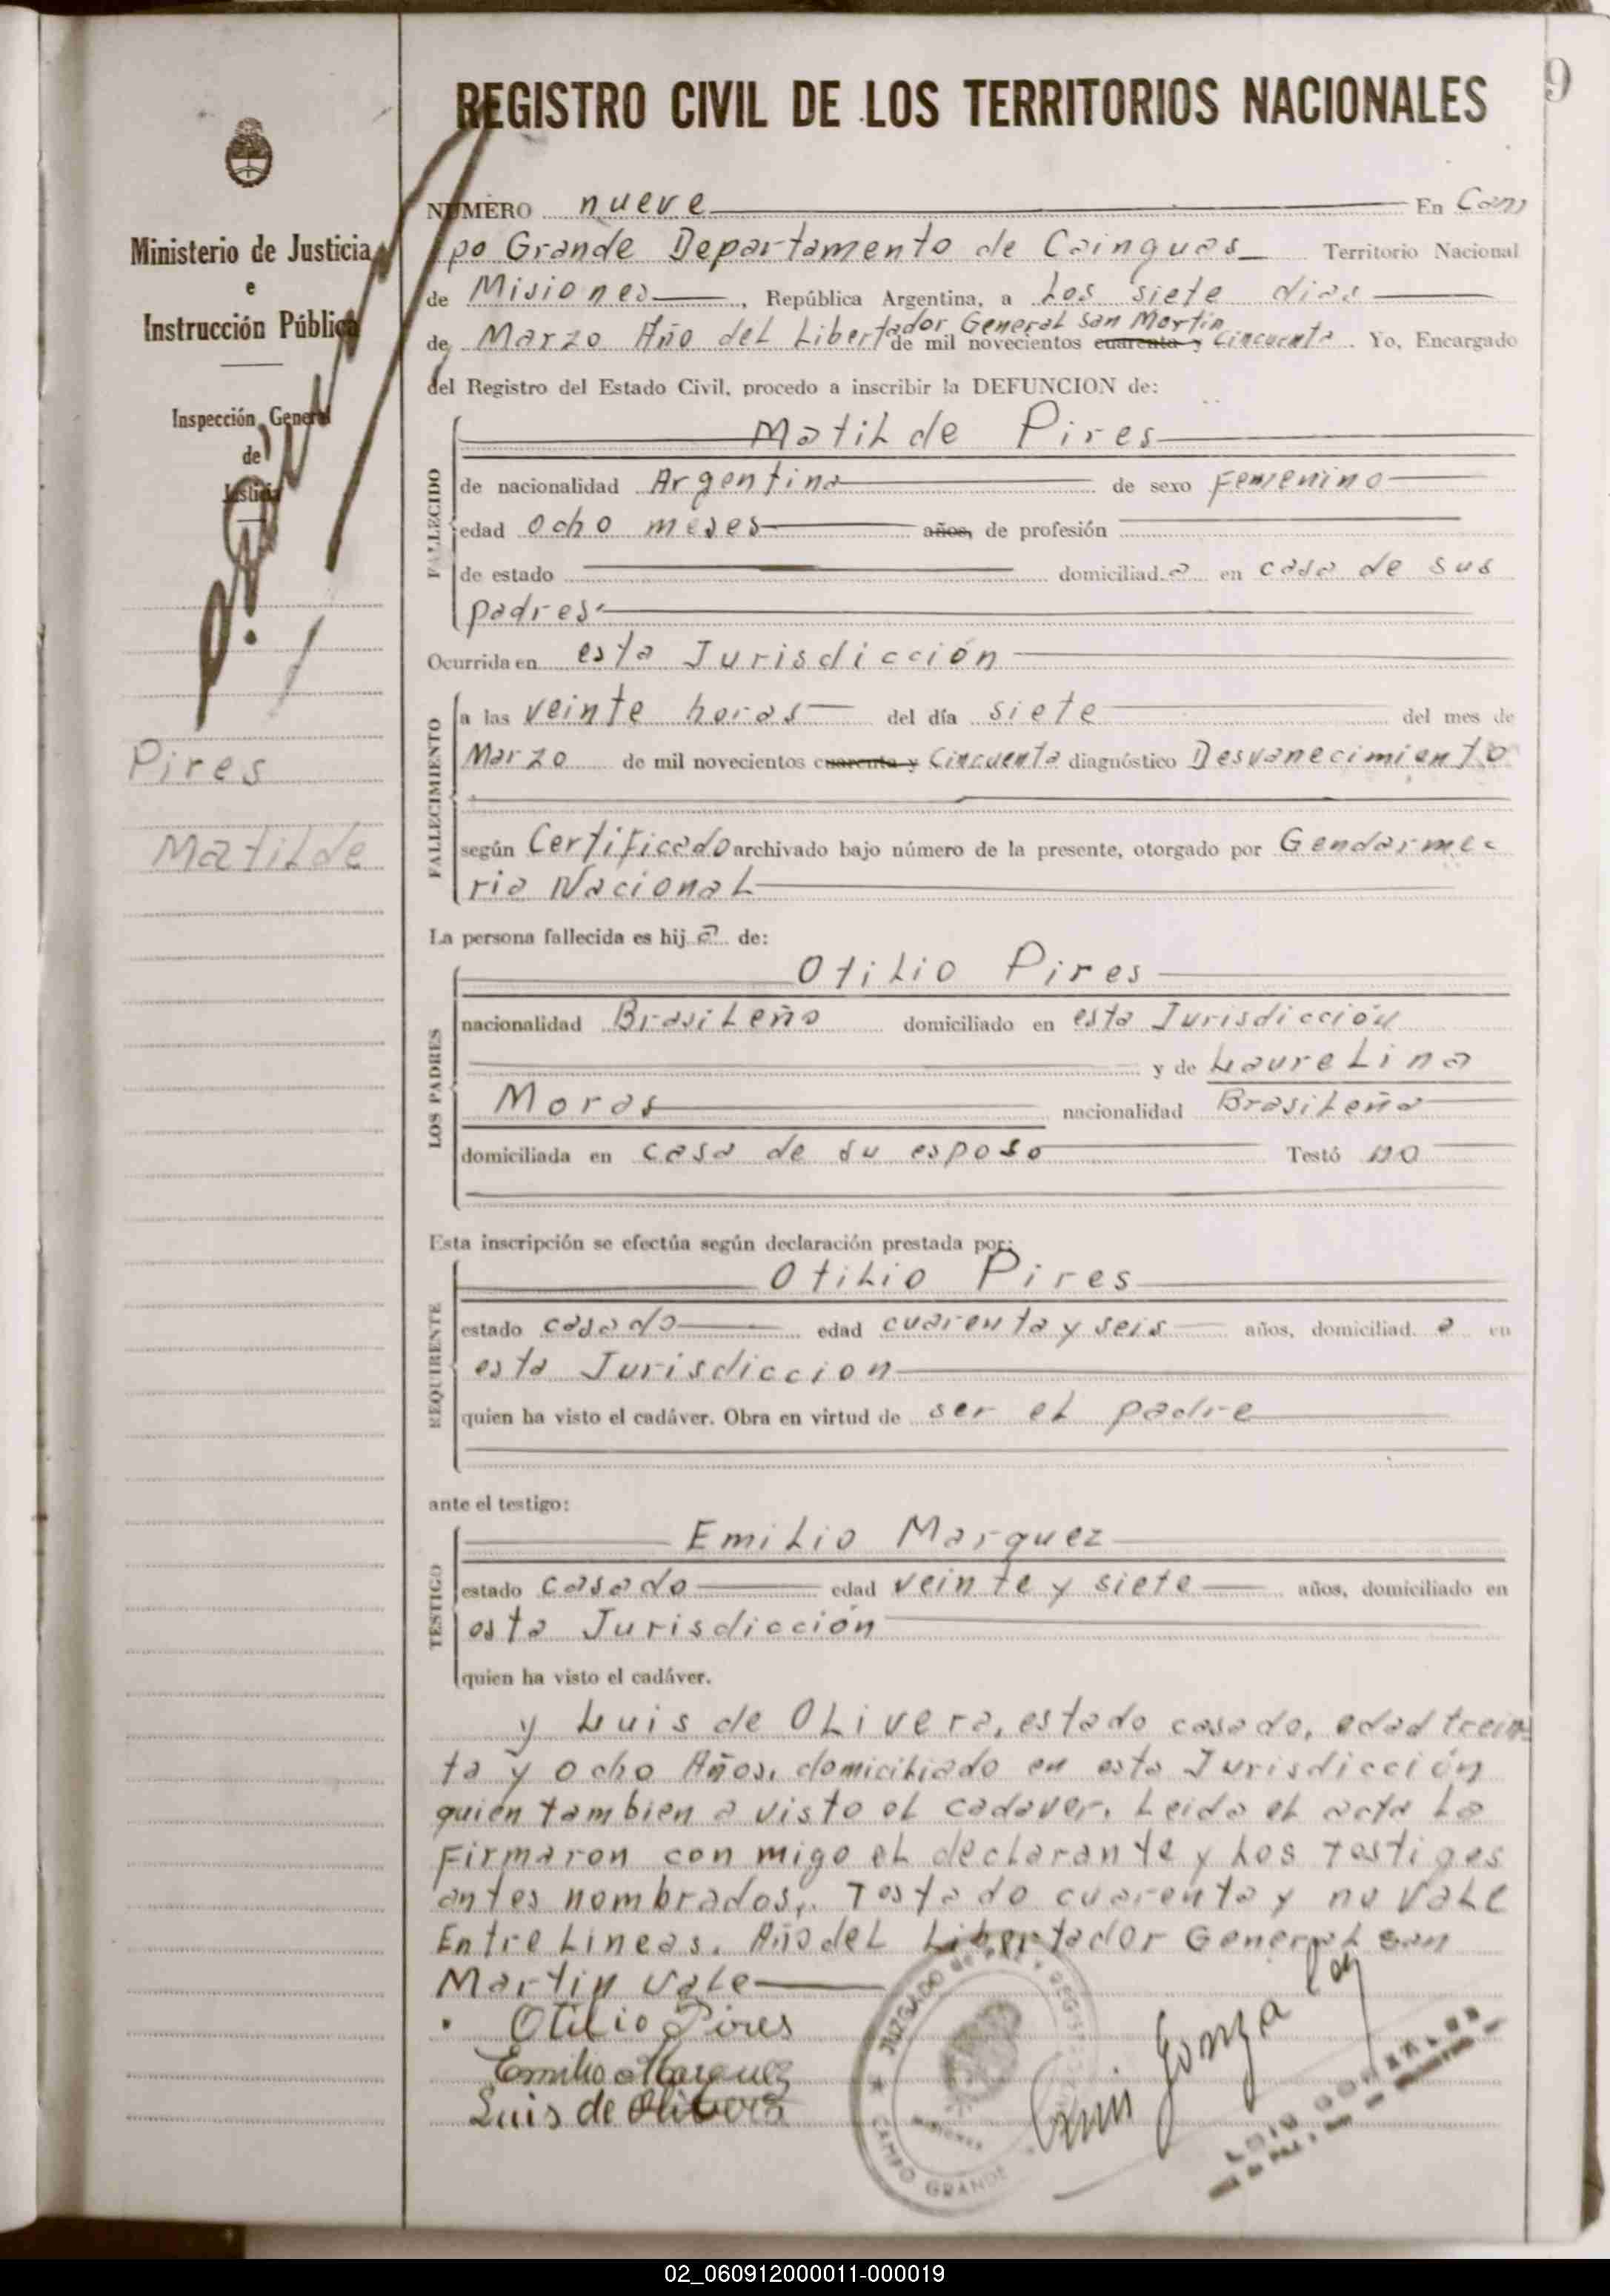 9
REGISTRO CIVIL DE LOS TERRITORIOS NACIONALES
Ministerio de Justicia
e
Instrucción Pública
Inspección General
de
Justicia
Pires
Matilde
NUMERO nueve En Cam
po Grande Departamento de Cainguas Territorio Nacional
de Misiones, República Argentina, a Los siete dias
de Marzo Año del Libertador General San Martin
de mil novecientos cuarenta y Cincuenta. Yo, Encargado
del Registro del Estado Civil, procedo a inscribir la DEFUNCION de:
FALLECIDO
Matilde Pires
de nacionalidad Argentina de sexo Femenino
edad ocho meses años, de profesión
de estado domiciliad a en casa de sus
padres
Ocurrida en esta Jurisdicción
FALLECIMIENTO
a las veinte horas del día siete del mes de
Marzo de mil novecientos cuarenta y Cincuenta diagnóstico Desvanecimiento
según Certificado archivado bajo número de la presente, otorgado por Gendarme
ria Nacional
La persona fallecida es hij a de:
LOS PADRES
Otilio Pires
nacionalidad Brasileño domiciliado en esta Jurisdicción
y de Laurelina
Moras nacionalidad Brasileña
domiciliada en casa de su esposo Testó no
Esta inscripción se efectúa según declaración prestada por:
REQUIRENTE
Otilio Pires
estado casado edad cuarenta y seis años, domiciliad. o en
esta Jurisdiccion
quien ha visto el cadáver. Obra en virtud de ser el padre
ante el testigo:
TESTIGO
Emilio Marquez
estado casado edad veinte y siete años, domiciliado en
esta Jurisdicción
quien ha visto el cadáver.
y Luis de Olivera, estado casado, edad trein
ta y ocho Años, domiciliado en esta Jurisdicción
quien tambien a visto el cadaver. Leida el acta la
Firmaron con migo el declarante y Los testigos
antes nombrados. Testado cuarenta y no vale
Entre Lineas. Año del Libertador General San
Martin vale
Otilio Pires
Emilio Marquez
Luis de Olivera
Luis Gonzalez
JUZGADO de PAZ y REGISTRO
MISIONES
CAMPO GRANDE
LUIS GONZALEZ
02_060912000011-000019